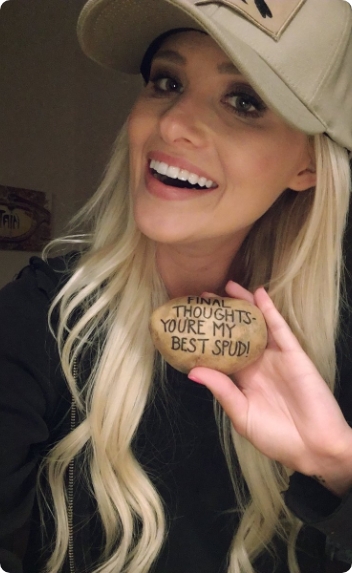 FINAL
THOUGHTS-
YOU'RE MY
BEST SPUD!